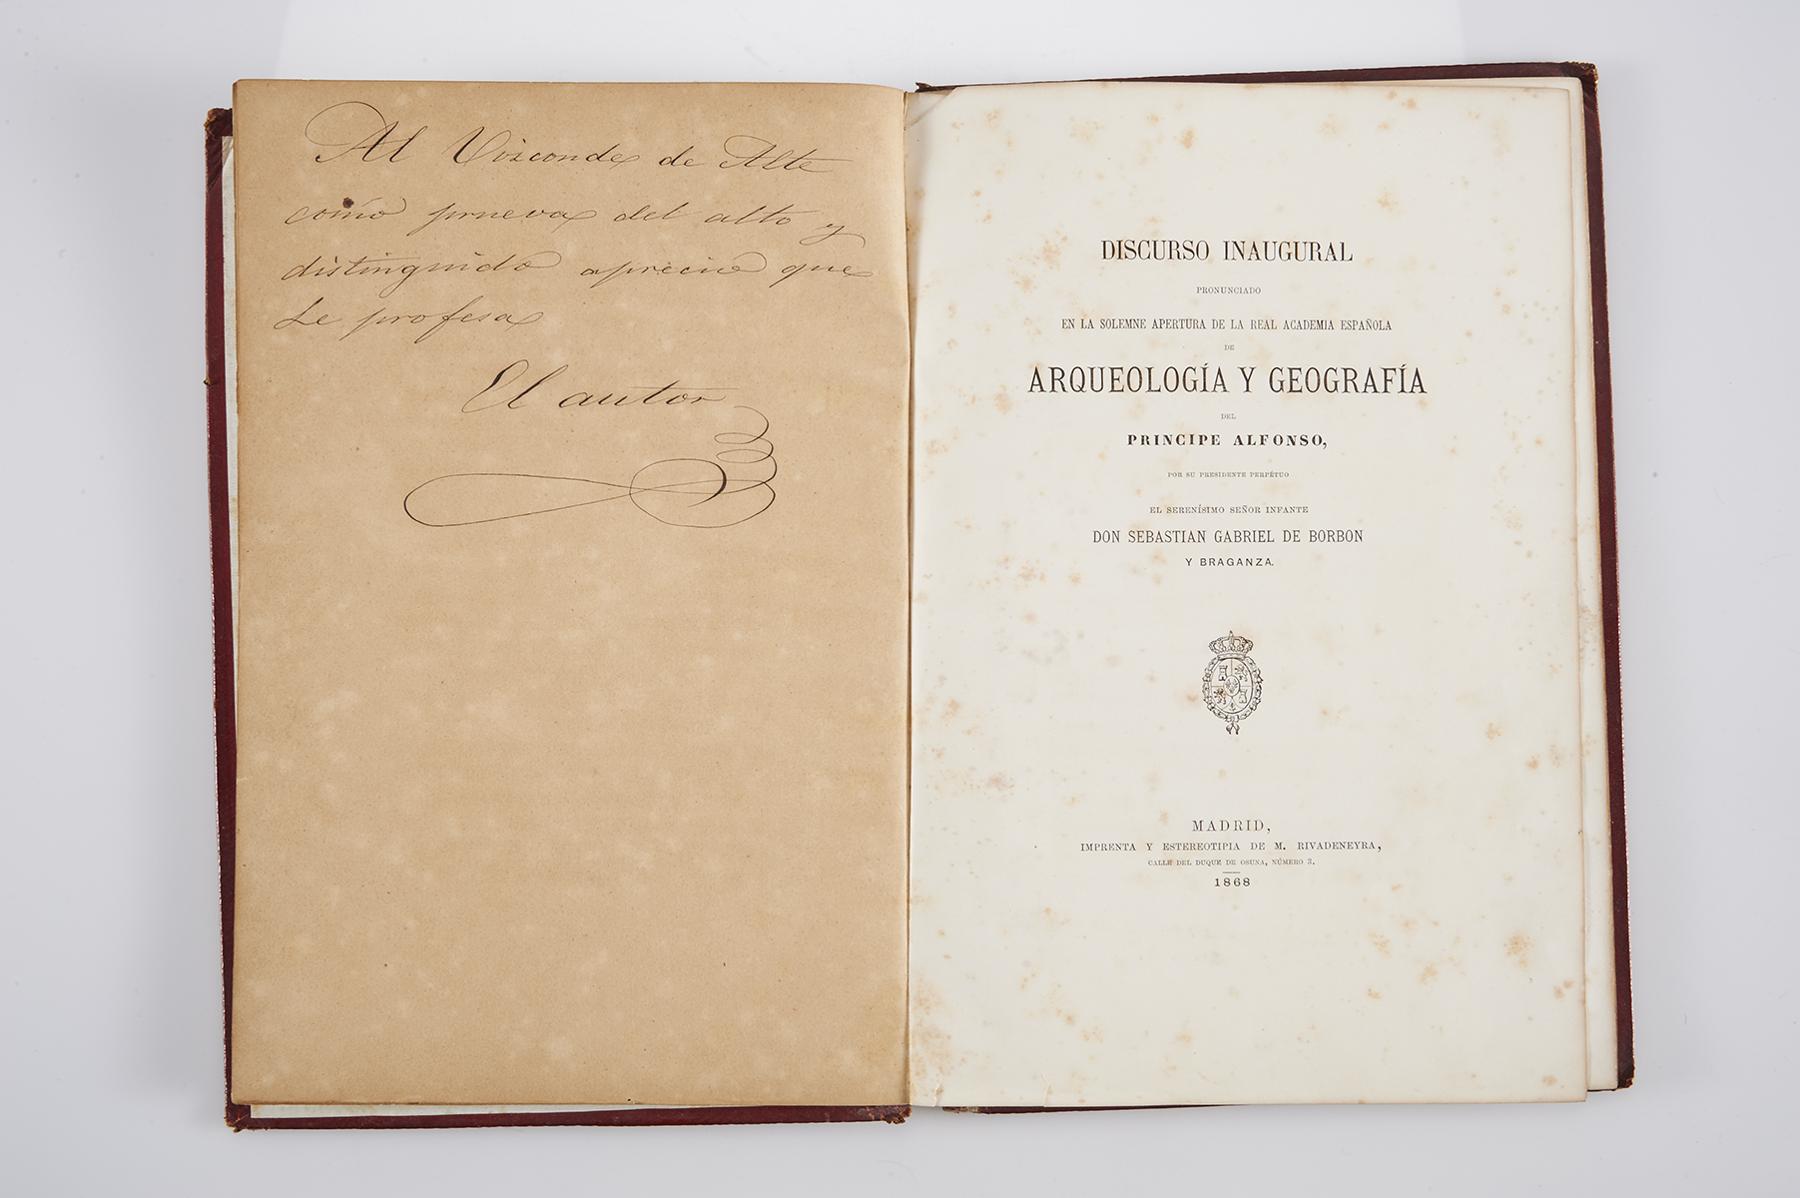 Al Vizconde de Alte
como prueva del alto y
distinguido aprecio que
Le profesa
El autor
DISCURSO INAUGURAL
PRONUNCIADO
EN LA SOLEMNE APERTURA DE LA REAL ACADEMIA ESPAÑOLA
DE
ARQUEOLOGÍA Y GEOGRAFÍA
DEL
PRINCIPE ALFONSO,
POR SU PRESIDENTE PERPÉTUO
EL SERENÍSIMO SEÑOR INFANTE
DON SEBASTIAN GABRIEL DE BORBON
Y BRAGANZA.
MADRID,
IMPRENTA Y ESTEREOTIPIA DE M. RIVADENEYRA,
CALLE DEL DUQUE DE OSUNA, NÚMERO 3.
1868